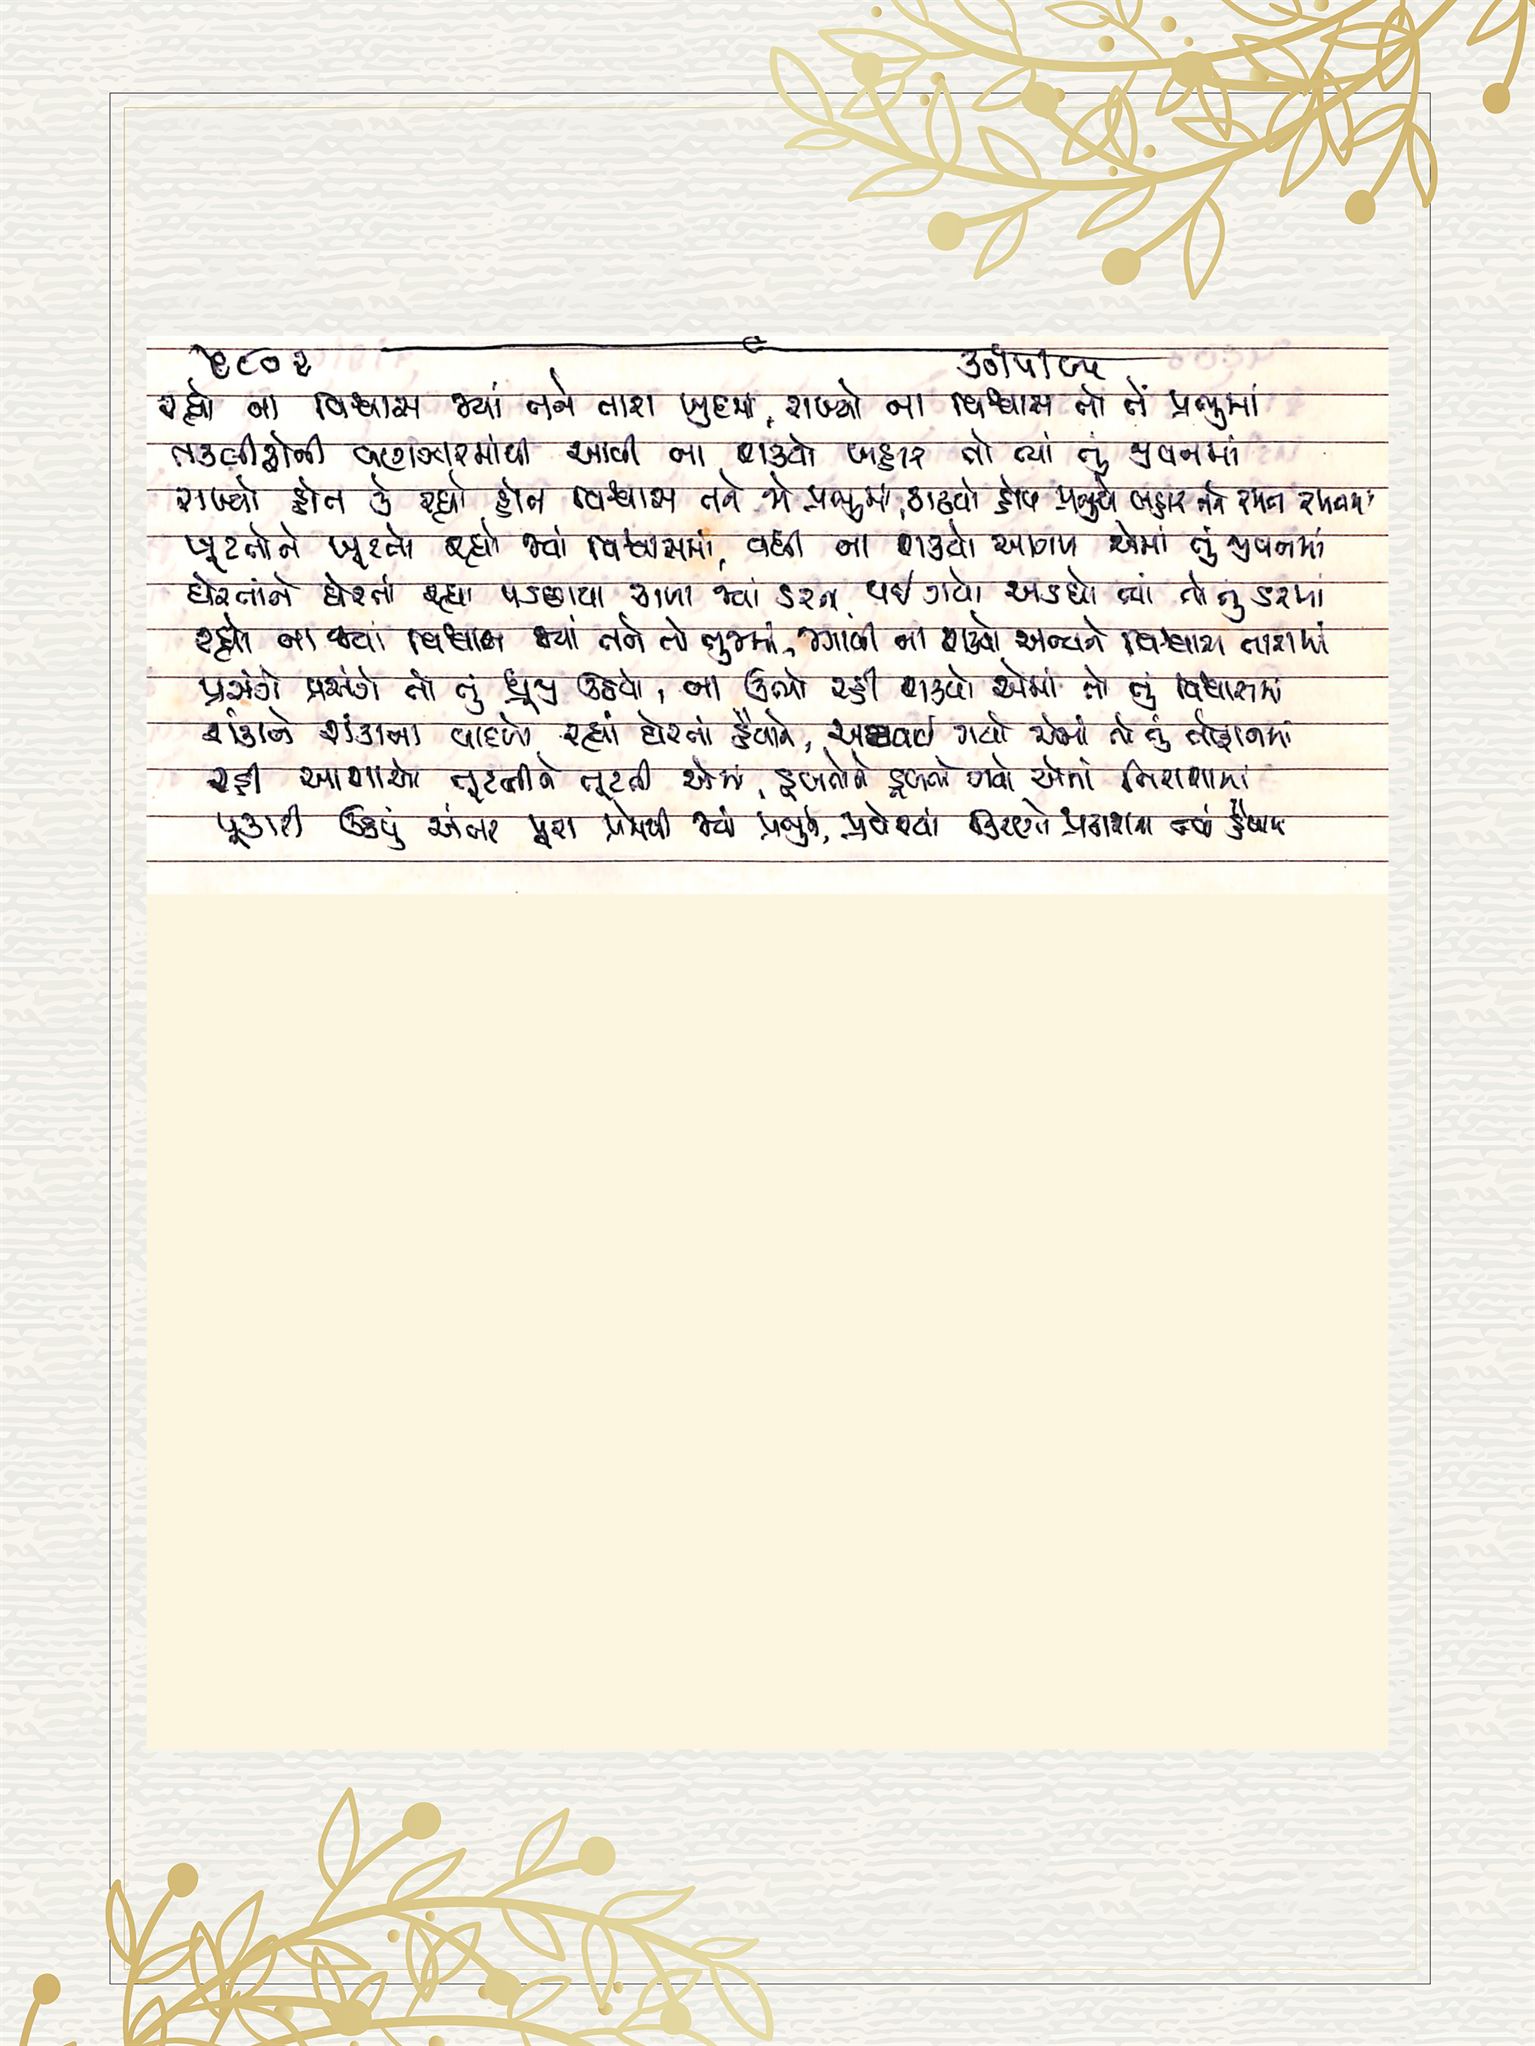 રહ્યો ના વિશ્વાસ જ્યાં તને તારા ખુદમાં, રાખ્યો ના વિશ્વાસ તો તેં પ્રભુમાં
તકલીફોની વણઝારમાંથી આવી ના શક્યો બહાર તો ત્યાં તું જીવનમાં
રાખ્યો હોત કે રહ્યો હોત વિશ્વાસ તને જો પ્રભુમાં, કાઢયો હોત પ્રભુએ બહાર તને રમત રમતમાં
ખૂટતોને ખૂટતો રહ્યો જ્યાં વિશ્વાસમાં, વધી ના શક્યો આગળ એમાં તું જીવનમાં
ઘેરતાંને ઘેરતાં રહ્યા પડછાયા કાળા જ્યાં ડરના, થઈ ગયો અડધો ત્યાં તો તું ડરમાં
રહ્યો ના જ્યાં વિશ્વાસ જ્યાં તને તો તુજમાં, જગાવી ના શક્યો અન્યને વિશ્વાસ તારામાં
પ્રસંગે પ્રસંગે તો તું ધ્રૂજી ઉઠયો, ના ઊભો રહી શક્યો એમાં તો તું વિશ્વાસમાં
શંકાને શંકાના વાદળો રહ્યાં ઘેરતાં હૈયાને, અટવાઈ ગયો એમાં તો તું તોફાનમાં
રહી આશાઓ તૂટતીને તૂટતી એમાં, ડૂબતોને ડૂબતો ગયો એમાં નિરાશામાં
પૂકારી ઉઠયું અંતર પૂરા પ્રેમથી જ્યાં પ્રભુને, પ્રવેશ્યાં કિરણો પ્રકાશના ત્યાં હૈયામાં